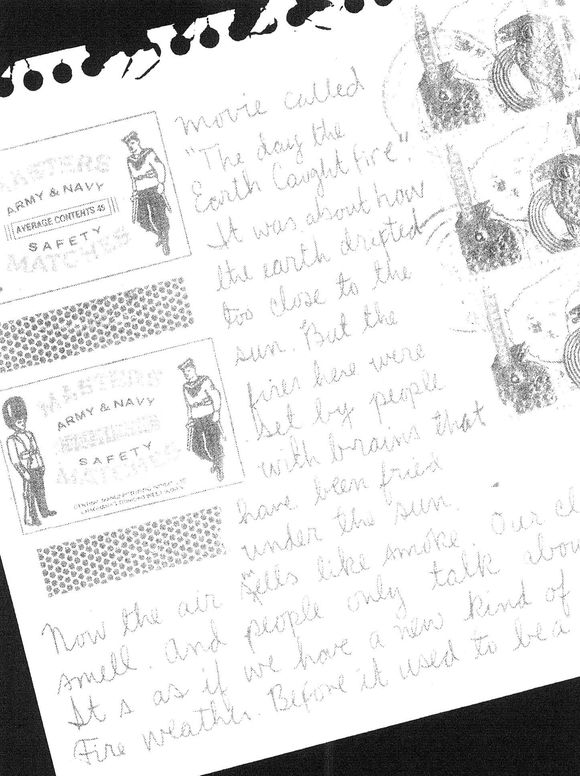 MASTERS
ARMY & NAVY
AVERAGE CONTENTS 45
SAFETY
MATCHES
MASTERS
ARMY & NAVY
SAFETY
MATCHES
movie called
"The day the
Earth Caught fire".
It was about how
the earth drifted
too close to the
sun. But the
fires here were
set by people
with brains that
have been fried
under the sun.
Now the air smells like smoke. Our cl
smell. And people only talk abou
It s as if we have a new kind of
Fire weather. Before it used to be a